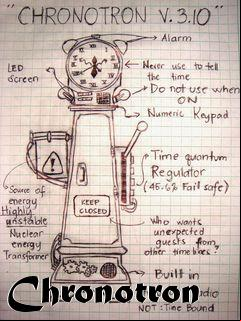 "CHRONOTRON V.3.10"
Alarm
LED
SCREEN
Never use to tell
the time
Do not use when
ON
Numeric Keypad
Time quantum
Regulator
(45.6% Fail safe)
Source of
energy
Highly
unstable
Nuclear
energy
Transformer
KEEP
CLOSED
Who wants
unexpected
guests from
other timelines?
Built in
Radio
NOT: Time Bound
Chronotron